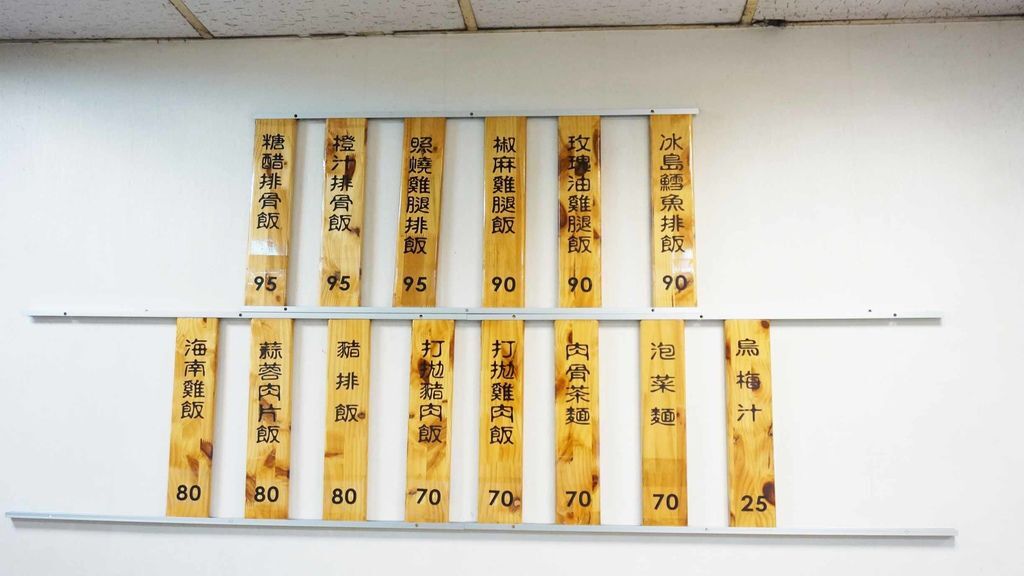 糖醋排骨飯 95
橙汁排骨飯 95
照燒雞腿排飯 95
椒麻雞腿飯 90
玫瑰油雞腿飯 90
冰島鱈魚排飯 90
海南雞飯 80
蒜蓉肉片飯 80
豬排飯 80
打拋豬肉飯 70
打拋雞肉飯 70
肉骨茶麵 70
泡菜麵 70
烏梅汁 25